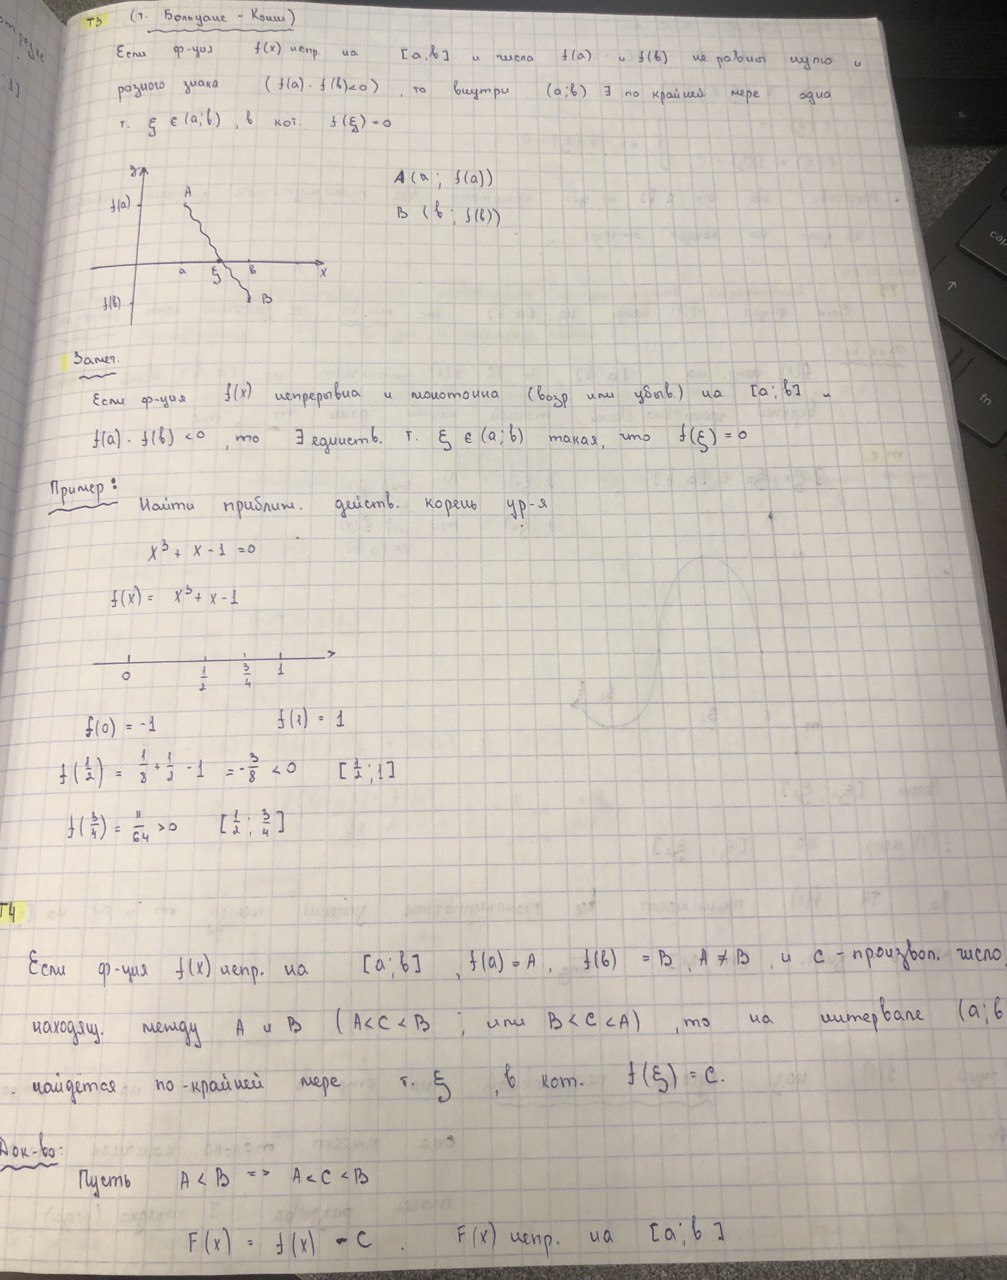 Т3 (т. Больцане - Коши)
Если ф-ция f(x) непр. на [a, b] и числа f(a) и f(b) не равны нулю и
разного знака (f(a) · f(b)<0), то внутри (a;b) ∃ по крайней мере одна
т. ξ ∈ (a;b), в кот. f(ξ) = 0
y
A
A(a; f(a))
f(a)
B (b; f(b))
a ξ b x
f(b) B
Замеч.
Если ф-ция f(x) непрерывна и монотонна (возр. или убыв.) на [a;b] и
f(a) · f(b) <0, то ∃ единств. т. ξ ∈ (a;b) такая, что f(ξ) = 0
Пример:
Найти приближ. действ. корень ур-я
x³ + x - 1 = 0
f(x) = x³ + x - 1
0 1/2 3/4 1
f(0) = -1 f(1) = 1
f(1/2) = 1/8 + 1/2 - 1 = -3/8 < 0 [1/2; 1]
f(3/4) = 11/64 > 0 [1/2; 3/4]
Т4
Если ф-ция f(x) непр. на [a;b], f(a) = A, f(b) = B, A ≠ B, и C - произвол. число,
находящ. между A и B (A<C<B; или B<C<A), то на интервале (a;b
найдётся по-крайней мере т. ξ, в кот. f(ξ) = C.
Док-во:
Пусть A < B => A < C < B
F(x) = f(x) - C. F(x) непр. на [a;b]